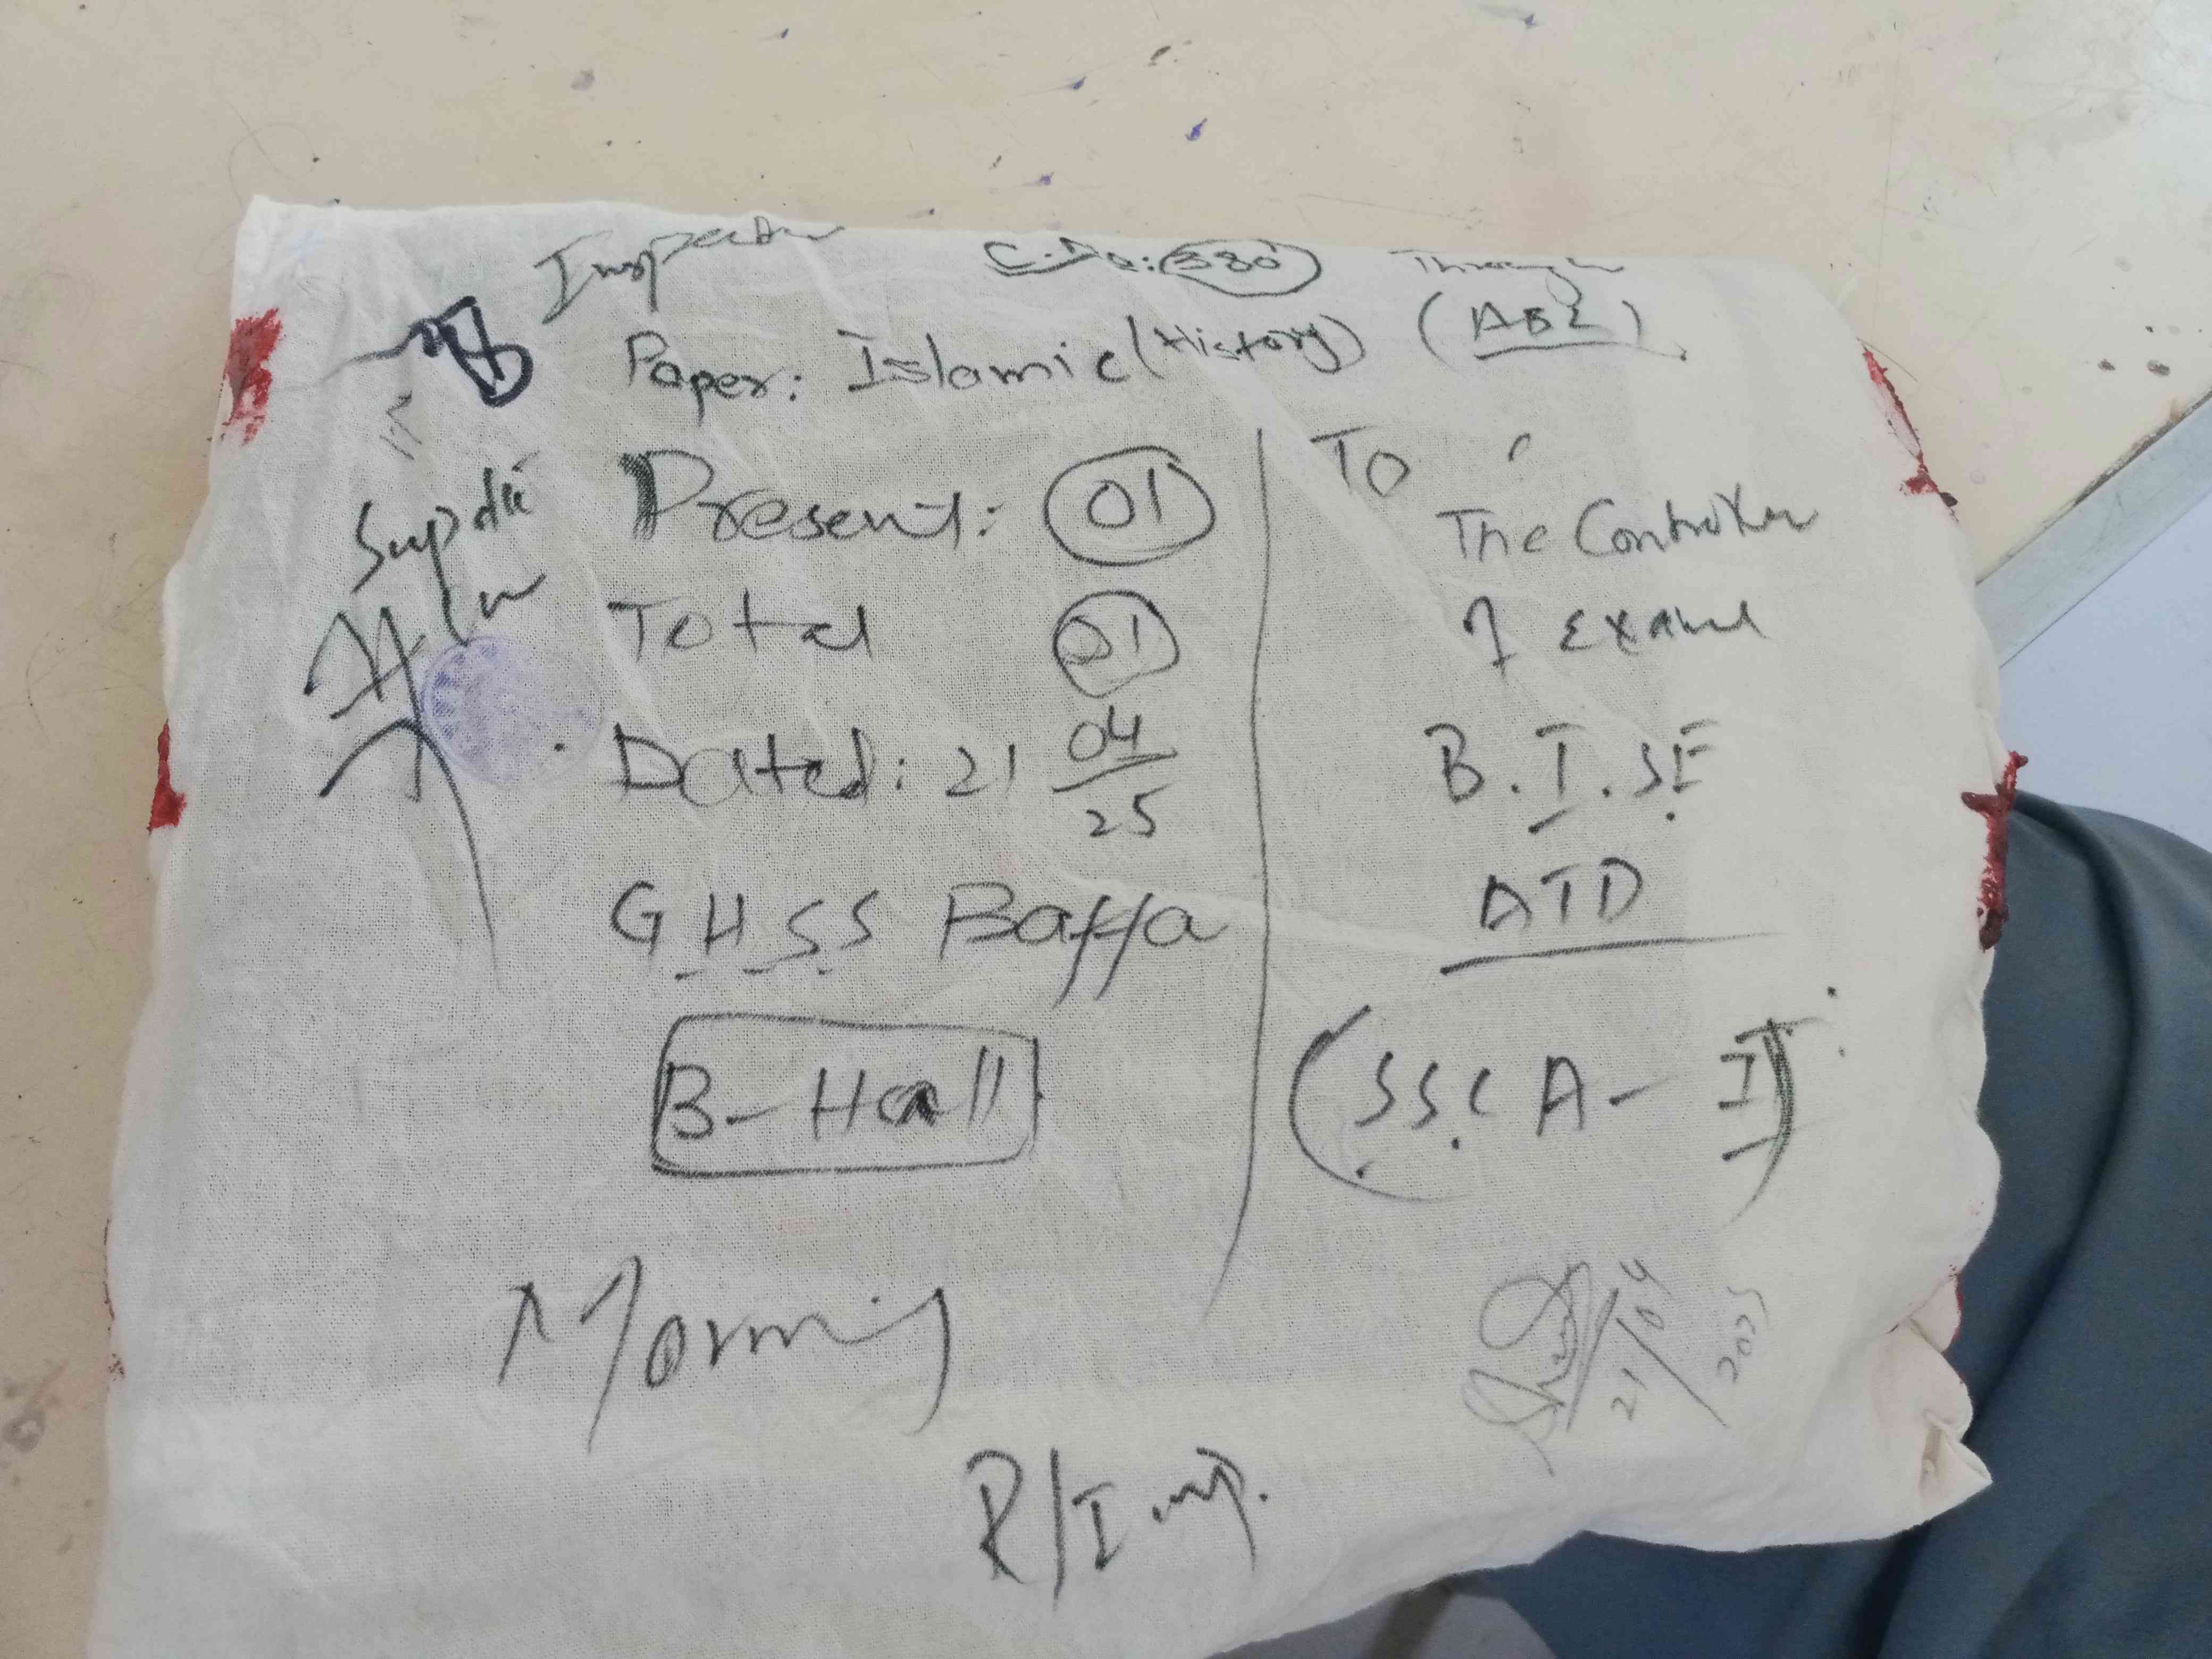 Inspector
C.No: 380
Through
Paper: Islamic (History)
(ABL)
Supdtt
Present: 01
Total 01
Dated: 21 04/25
G.H.S.S Baffa
B-Hall
Morning
To
The Controller
of Exams
B.I.SE
ATD
(SSC A-I)
21/04
2025
R/Imp.